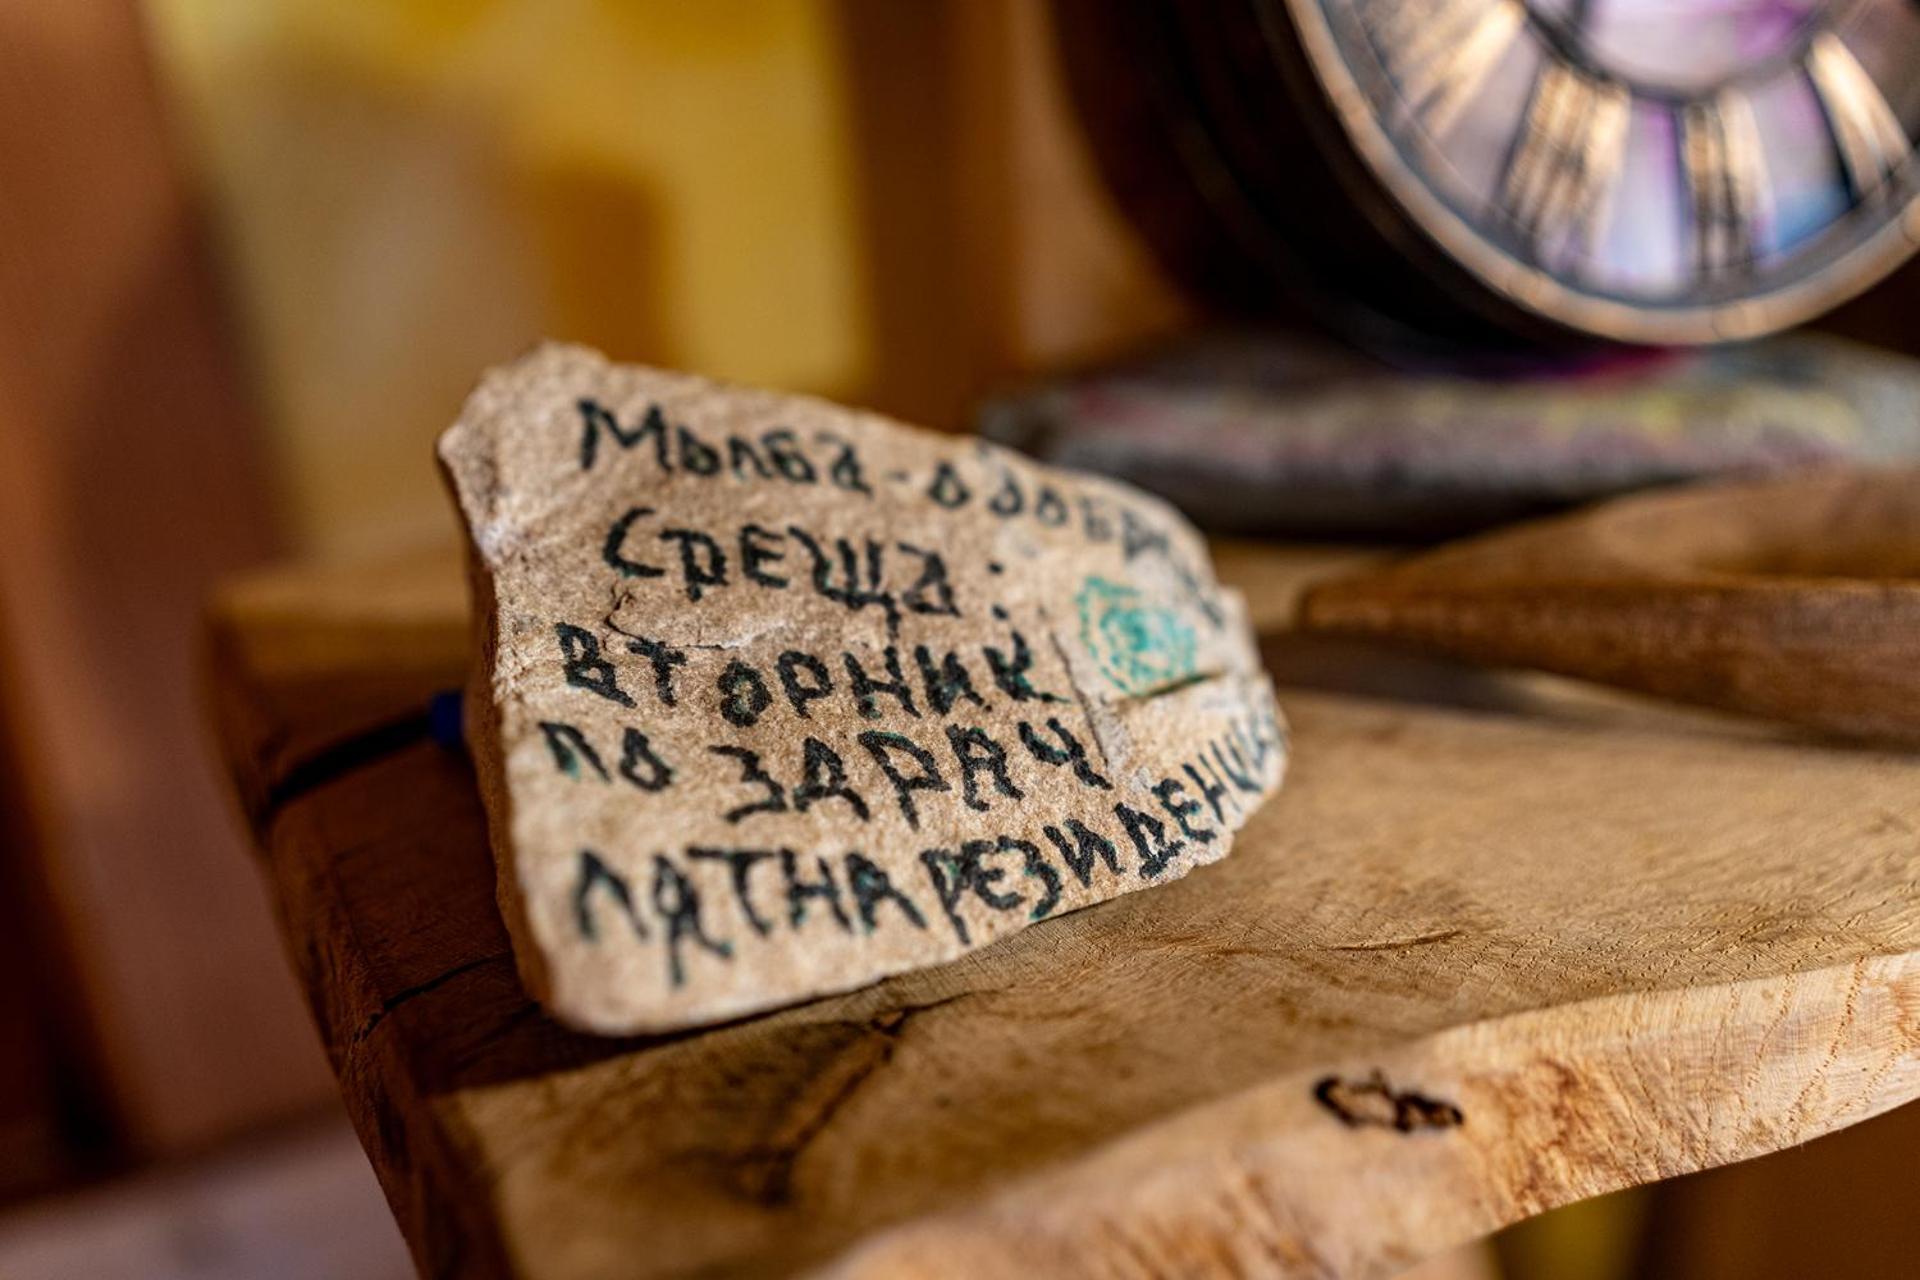 Молба-одобр
Среща:
вторник
по здрач
лятна резиденция